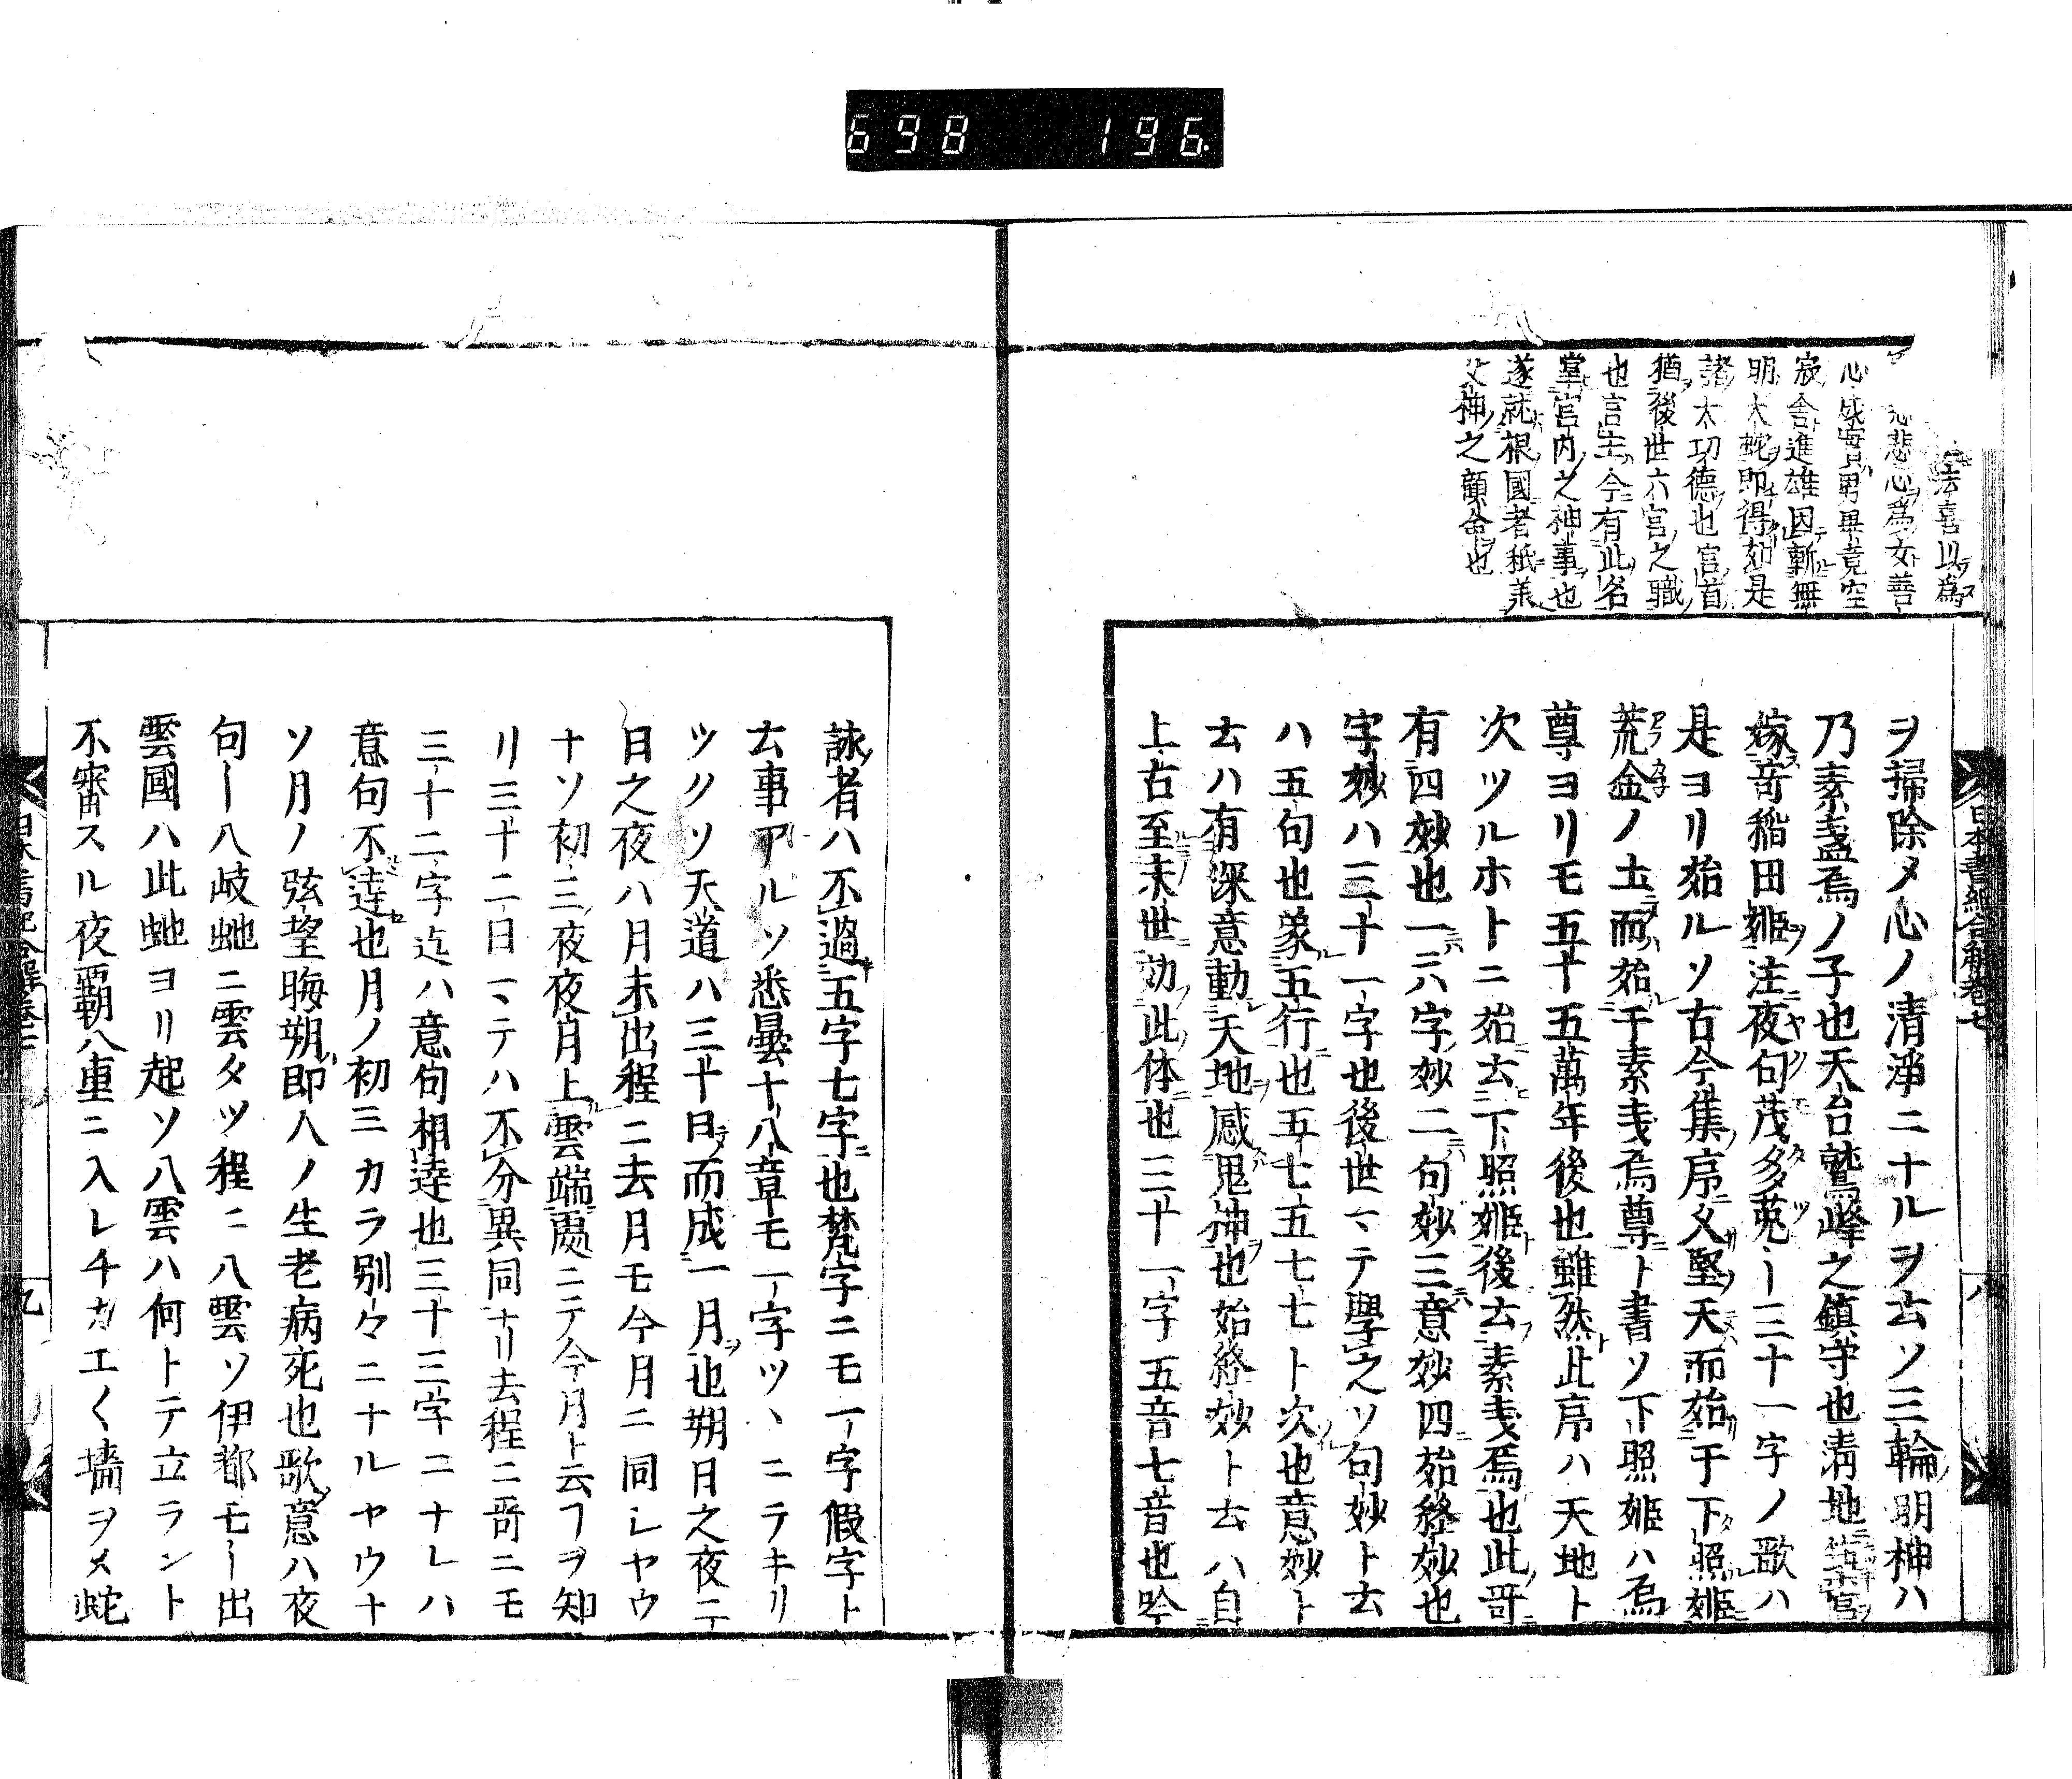 698 196
法喜以爲
悲心爲女善
心成實男畢竟空
寂舎進雄因斬無
明大蛇即得如是
諸太功德也宮首
猶後世六宮之職
也言主令有此名
掌宮内之神事也
遂就根國者秖美
父神之顧命也
日本書紀合解巻七
八
ヲ掃除メ心ノ清淨ニナルヲ云ソ三輪明神ハ
乃素盞烏ノ子也天台鷲峰之鎮守也淸地
嫁竒稻田姬注夜句茂多菟ー三十一字ノ歌ハ
是ヨリ始ルソ古今集序乂堅天而始于下照姬
荒金ノ土而始于素戔烏尊ト書ソ下照姬ハ烏
尊ヨリモ五十五萬年後也雖然此序ハ天地ト
次ツルホトニ始云下照姬後云素戔烏也此哥
有四妙也一ニハ字妙二句妙三意妙四始終妙也
字妙ハ三十一字也後世ヽテ學之ソ句妙ト云
ハ五句也象五行也五七五七七ト次也意妙ト
云ハ有深意動天地感鬼神也始終妙ト云ハ自
上古至末世効此体也三十一字五音七音也吟
詠者ハ不過五字七字也梵字ニモ一字假字ト
云事アルソ悉曇十八章モ一字ツヽニテキリ
ツクソ天道ハ三十日而成一月也朔日之夜二
日之夜ハ月未出程ニ去月モ今月ニ同レヤウ
ナソ初三夜夜月上雲端處ニテ今月ト云フヲ知
リ三十二日ヽテハ不分異同ナリ去程ニ哥ニモ
三十二字迄ハ意句相違也三十三字ニナレハ
意句不違也月ノ初三カラ別々ニナルヤウナ
ソ月ノ弦望晦朔即人ノ生老病死也歌意ハ夜
句ー八岐虵ニ雲タツ程ニ八雲ソ伊都モー出
雲國ハ此虵ヨリ起ソ八雲ハ何トテ立ラント
不審スル夜覇八重ニ入レチカエ〱墻ヲメ蛇
九